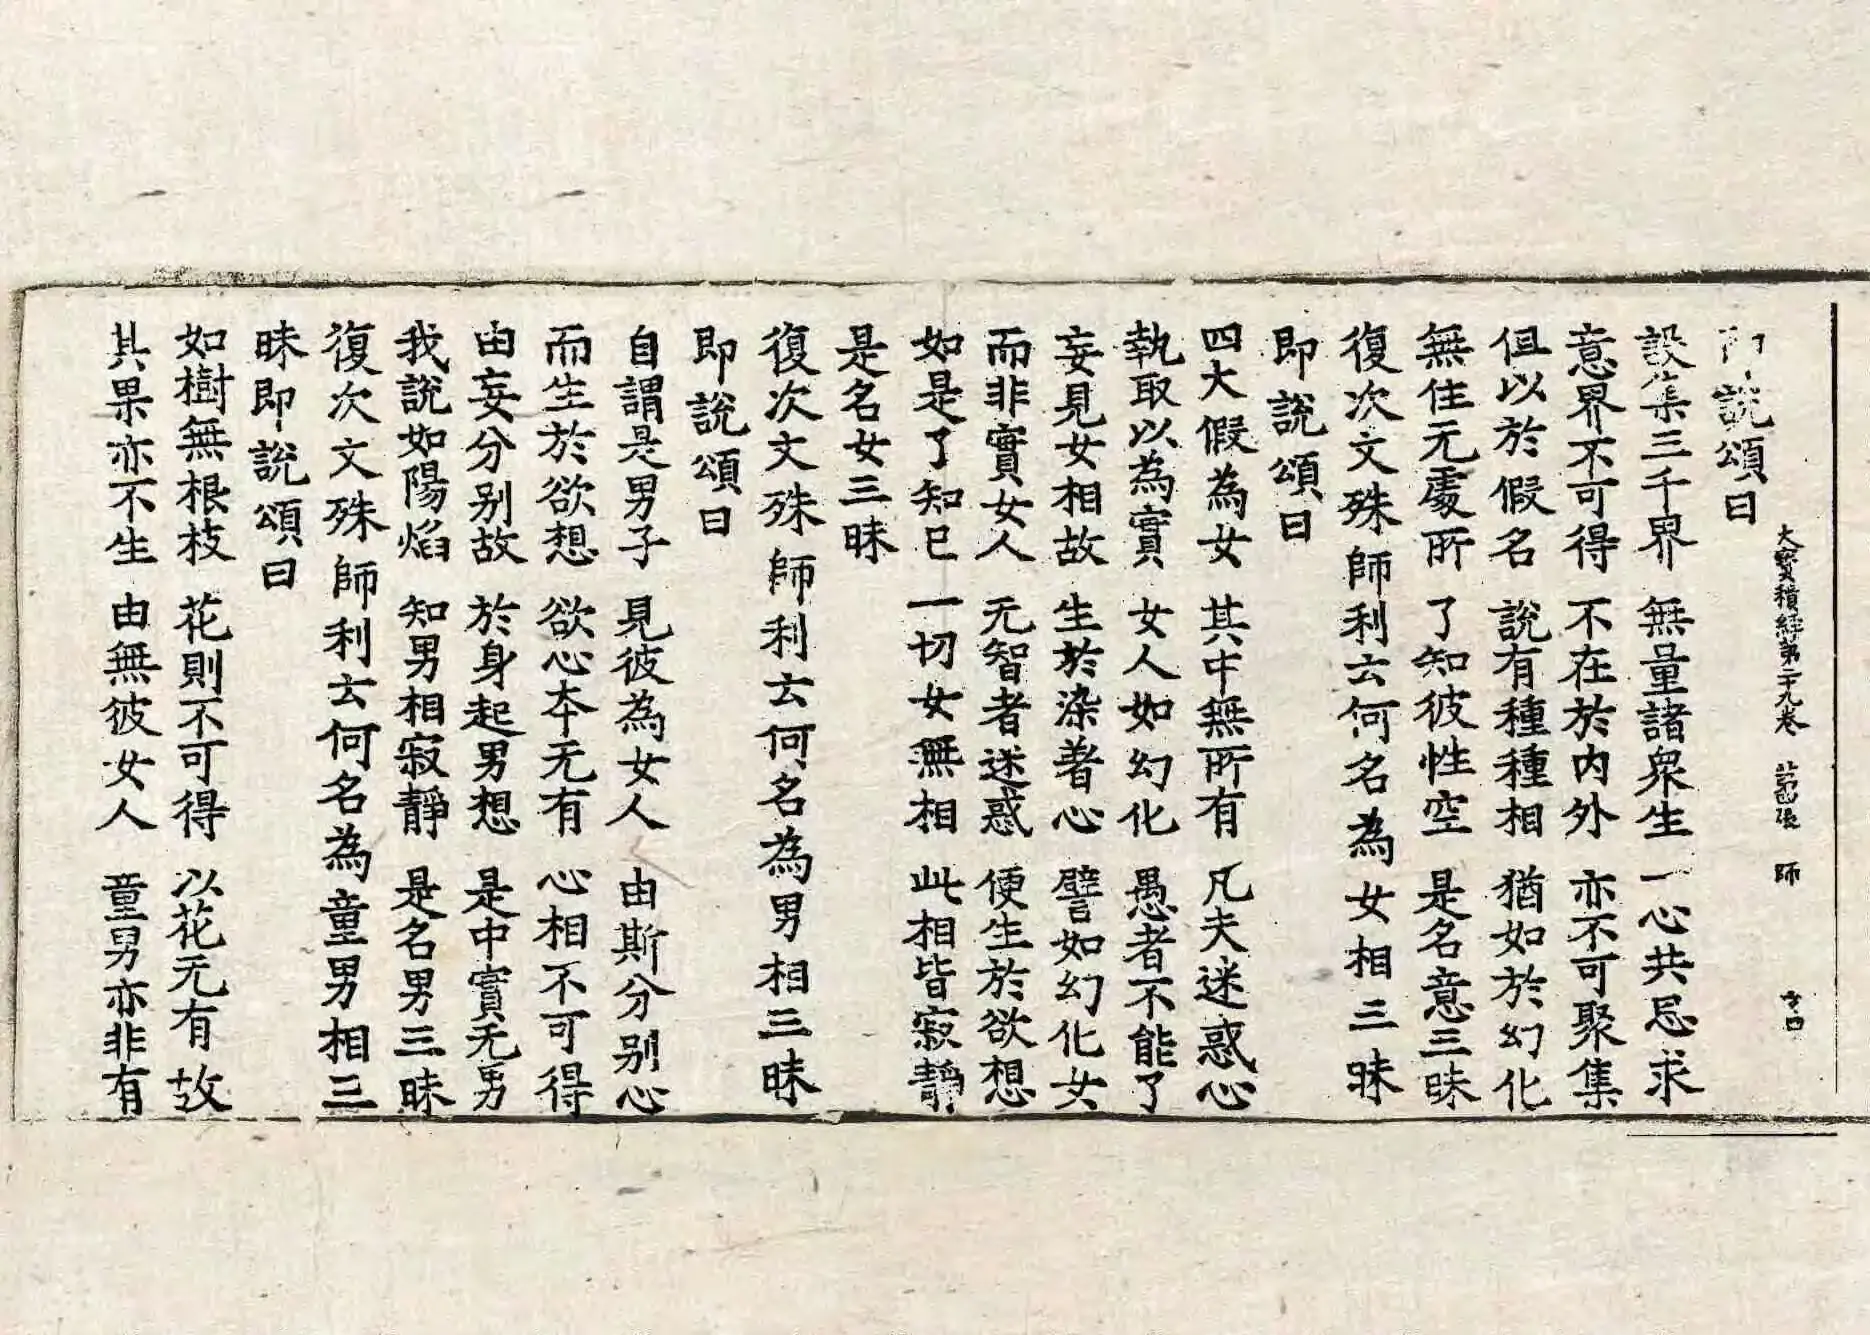 大寳積經第二十九卷 苐四張 師
即說頌曰
設集三千界 無量諸衆生 一心共思求
意界不可得 不在於内外 亦不可聚集
但以於假名 說有種種相 猶如於幻化
無住无處所 了知彼性空 是名意三昧
復次文殊師利云何名為女相三昧
即說頌曰
四大假為女 其中無所有 凡夫迷惑心
執取以為實 女人如幻化 愚者不能了
妄見女相故 生於染著心 譬如幻化女
而非實女人 无智者迷惑 便生於欲想
如是了知已 一切女無相 此相皆寂靜
是名女三昧
復次文殊師利云何名為男相三昧
即說頌曰
自謂是男子 見彼為女人 由斯分别心
而生於欲想 欲心夲无有 心相不可得
由妄分别故 於身起男想 是中實无男
我說如陽焰 知男相寂靜 是名男三昧
復次文殊師利云何名為童男相三
昧即說頌曰
如樹無根枝 花則不可得 以花无有故
其果亦不生 由無彼女人 童男亦非有